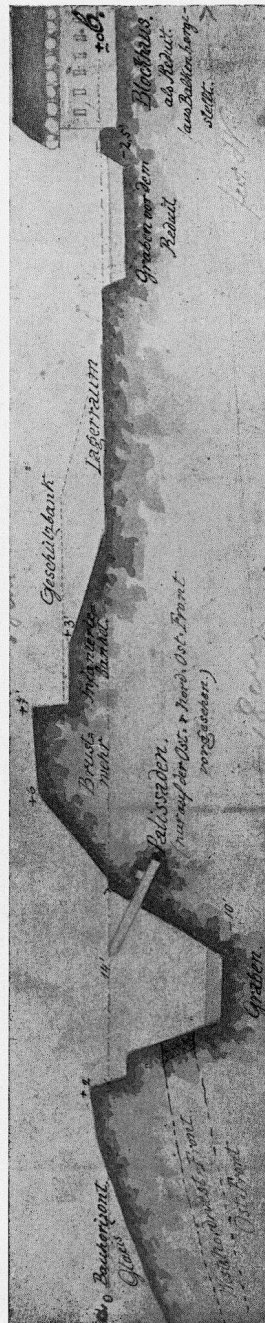 ± 0 Bauhorizont
Glacis
+ 2
Ost Front
Graben
10'
14'
Palissaden.
(nur auf der Ost. & Nord. Ost. Front
vorgesehen.)
+ 6
+ 7'
Brust-
wehr
Infanterie-
+ 3'
Geschützbank
Lagerraum
Graben vor dem
Reduit
- 2,5'
± 0
Blockhaus.
als Reduit.
(aus Balken herge-
stellt.